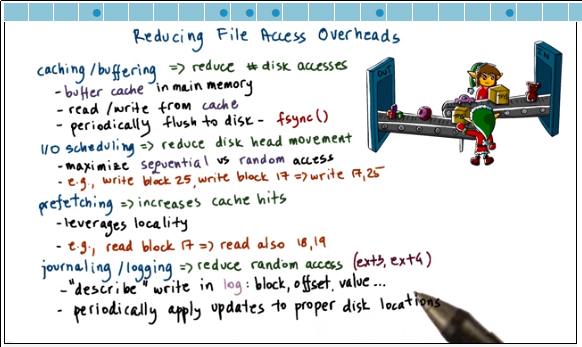 Reducing File Access Overheads
caching/buffering => reduce # disk accesses
- buffer cache in main memory
- read/write from cache
- periodically flush to disk - fsync()
I/O scheduling => reduce disk head movement
- maximize sequential vs random access
- e.g., write block 25, write block 17 => write 17,25
prefetching => increases cache hits
- leverages locality
- e.g., read block 17 => read also 18,19
journaling/logging => reduce random access (ext3, ext4)
- "describe" write in log: block, offset, value...
- periodically apply updates to proper disk locations
OUT
IN